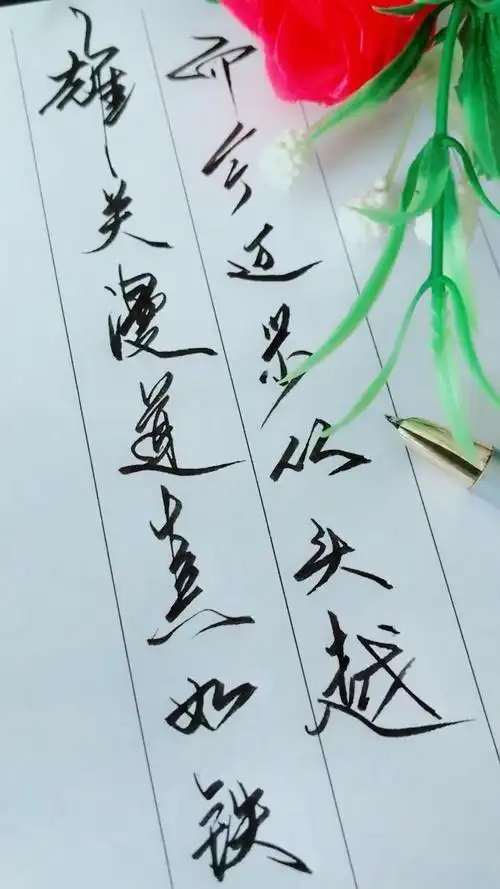 雄关漫道真如铁
而今迈步从头越